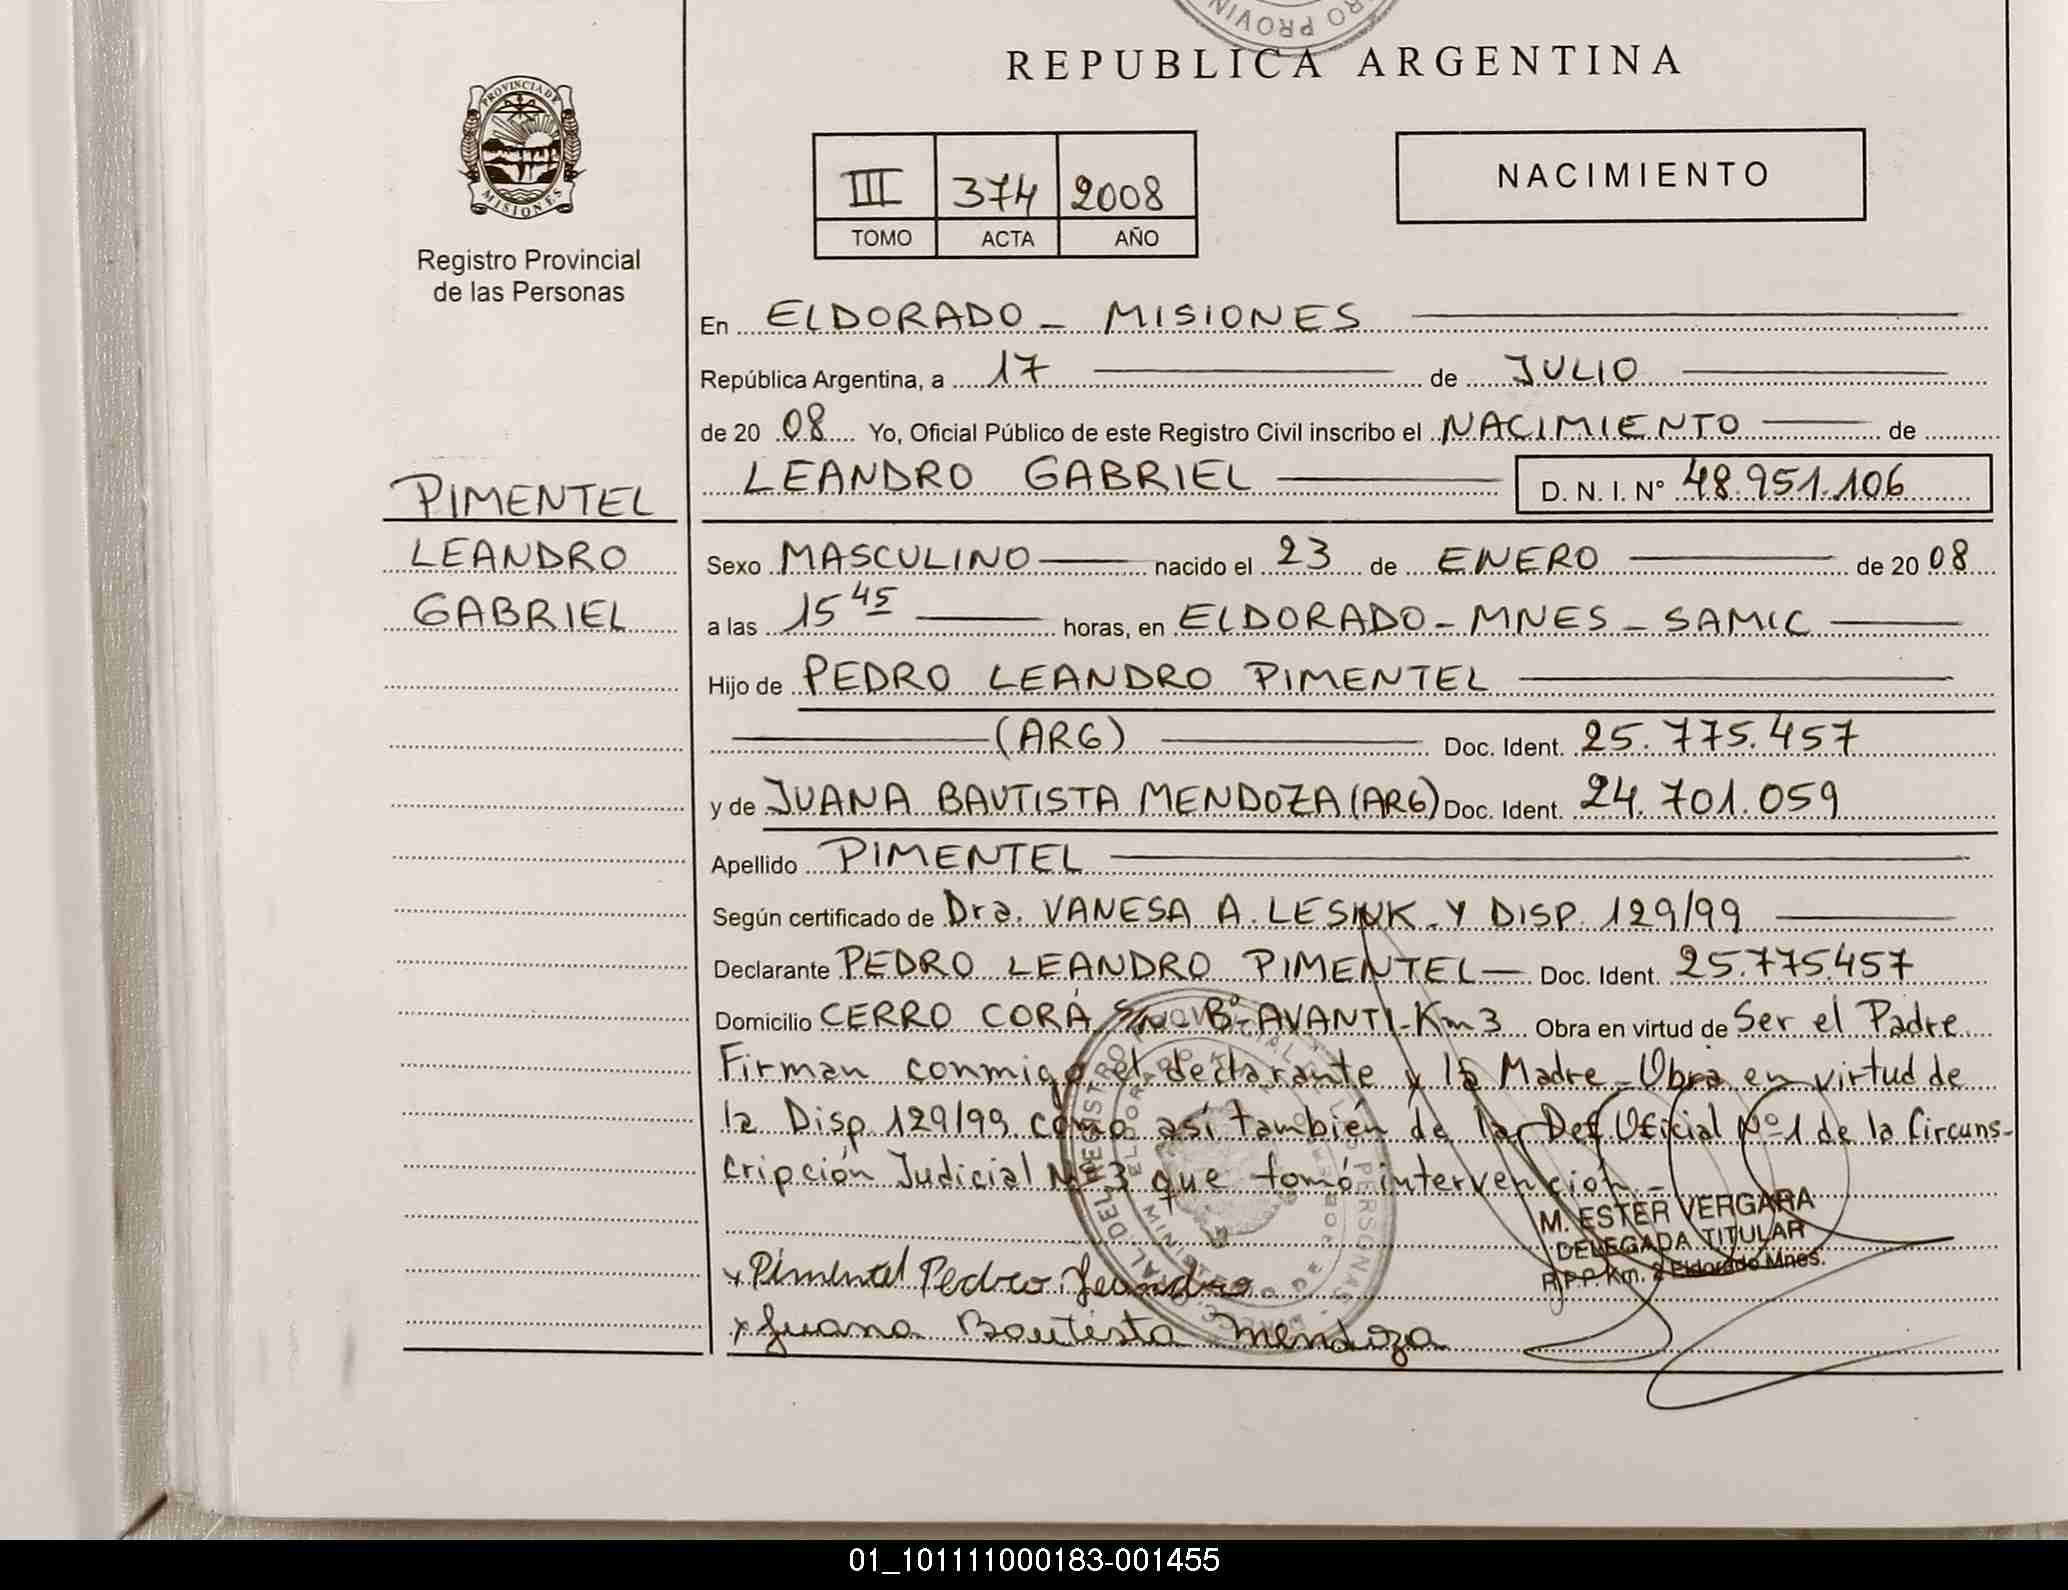 REPUBLICA ARGENTINA
PROVINCIA DE
MISIONES
Registro Provincial
de las Personas
III 374 2008
TOMO ACTA AÑO
NACIMIENTO
PIMENTEL
LEANDRO
GABRIEL
En ELDORADO - MISIONES
República Argentina, a 17 de JULIO
de 20 08 Yo, Oficial Público de este Registro Civil inscribo el NACIMIENTO de
LEANDRO GABRIEL D. N. I. N° 48.951.106
Sexo MASCULINO nacido el 23 de ENERO de 20 08
a las 15 45 horas, en ELDORADO - MNES - SAMIC
Hijo de PEDRO LEANDRO PIMENTEL
(ARG) Doc. Ident. 25.775.457
y de JUANA BAUTISTA MENDOZA (ARG) Doc. Ident. 24.701.059
Apellido PIMENTEL
Según certificado de Dra. VANESA A. LESIUK Y DISP. 129/99
Declarante PEDRO LEANDRO PIMENTEL Doc. Ident. 25.775.457
Domicilio CERRO CORÁ S/N - B° AVANTI - Km 3 Obra en virtud de Ser el Padre
Firman conmigo el declarante y la Madre - Obra en virtud de
la Disp 129/99 como así también de la Def Oficial Nº 1 de la Circuns-
cripción Judicial Nº 3 que tomó intervención.-
M. ESTER VERGARA
DELEGADA TITULAR
R.P.P. Km. 2 Eldorado Mnes.
x Pimentel Pedro Leandro
x Juana Bautista Mendoza
01_101111000183-001455